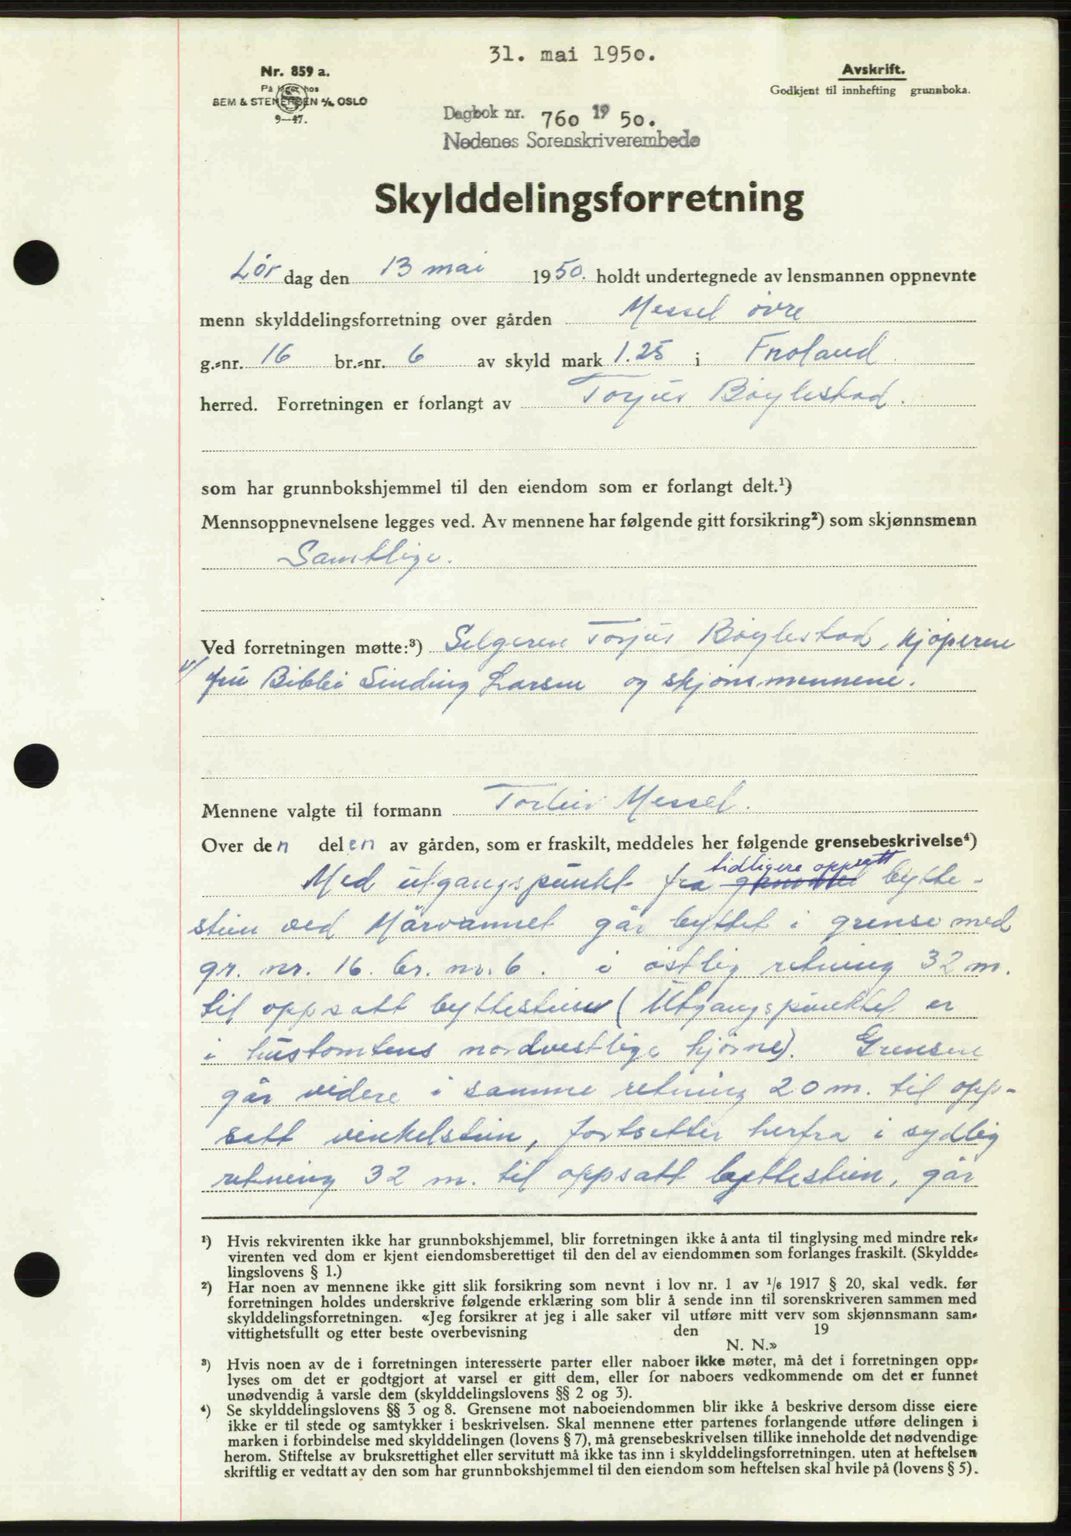 31. mai 1950.
Nr. 859 a.
På lager hos
BEM & STENERSEN A/S, OSLO
9—47.
Avskrift.
Godkjent til innhefting grunnboka.
Dagbok nr. 760 19 50.
Nedenes Sorenskriverembede
Skylddelingsforretning
Lör dag den 13 mai 1950. holdt undertegnede av lensmannen oppnevnte
menn skylddelingsforretning over gården Messel övre
g.-nr. 16 br.-nr. 6 av skyld mark 1.25 i Froland
herred. Forretningen er forlangt av Torjus Böylestad.
som har grunnbokshjemmel til den eiendom som er forlangt delt.¹)
Mennsoppnevnelsene legges ved. Av mennene har følgende gitt forsikring²) som skjønnsmenn
Samtlige.
Ved forretningen møtte:³) Selgeren Torjus Böylestad, kjöperen
fru Bibbi Sinding Larsen og skjönsmennene.
Mennene valgte til formann Torleiv Messel.
Over den delen av gården, som er fraskilt, meddeles her følgende grensebeskrivelse⁴)
tidligere oppsatt
Med utgangspunkt fra bytte-
stein ved Mårvannet går byttet i grense med
gr. nr. 16. br. nr. 6. i östlig retning 32 m.
til oppsatt byttestein (Utgangspunktet er
i hustomtens nordvestlige hjörne). Grensen
går videre i samme retning 20 m. til opp-
satt vinkelstein, fortsetter herfra i sydlig
retning 32 m. til oppsatt byttestein, går
¹) Hvis rekvirenten ikke har grunnbokshjemmel, blir forretningen ikke å anta til tinglysing med mindre rek-
virenten ved dom er kjent eiendomsberettiget til den del av eiendommen som forlanges fraskilt. (Skyldde-
lingslovens § 1.)
²) Har noen av mennene ikke gitt slik forsikring som nevnt i lov nr. 1 av 1/6 1917 § 20, skal vedk. før
forretningen holdes underskrive følgende erklæring som blir å sende inn til sorenskriveren sammen med
skylddelingsforretningen. «Jeg forsikrer at jeg i alle saker vil utføre mitt verv som skjønnsmann sam-
vittighetsfullt og etter beste overbevisning den 19
N. N.»
³) Hvis noen av de i forretningen interesserte parter eller naboer ikke møter, må det i forretningen opp-
lyses om det er godtgjort at varsel er gitt dem, eller for naboers vedkommende om det er funnet
unødvendig å varsle dem (skylddelingslovens §§ 2 og 3).
⁴) Se skylddelingslovens §§ 3 og 8. Grensene mot naboeiendommen blir ikke å beskrive dersom disse eiere
ikke er til stede og samtykker i beskrivelsen. Skal mennene etter partenes forlangende utføre delingen i
marken i forbindelse med skylddelingen (lovens § 7), må grensebeskrivelsen tillike inneholde det nødvendige
herom. Stiftelse av bruksrettighet eller servitutt må ikke tas inn i skylddelingsforretningen, uten at heftelsen
skriftlig er vedtatt av den som har grunnbokshjemmel til den eiendom som heftelsen skal hvile på (lovens § 5).